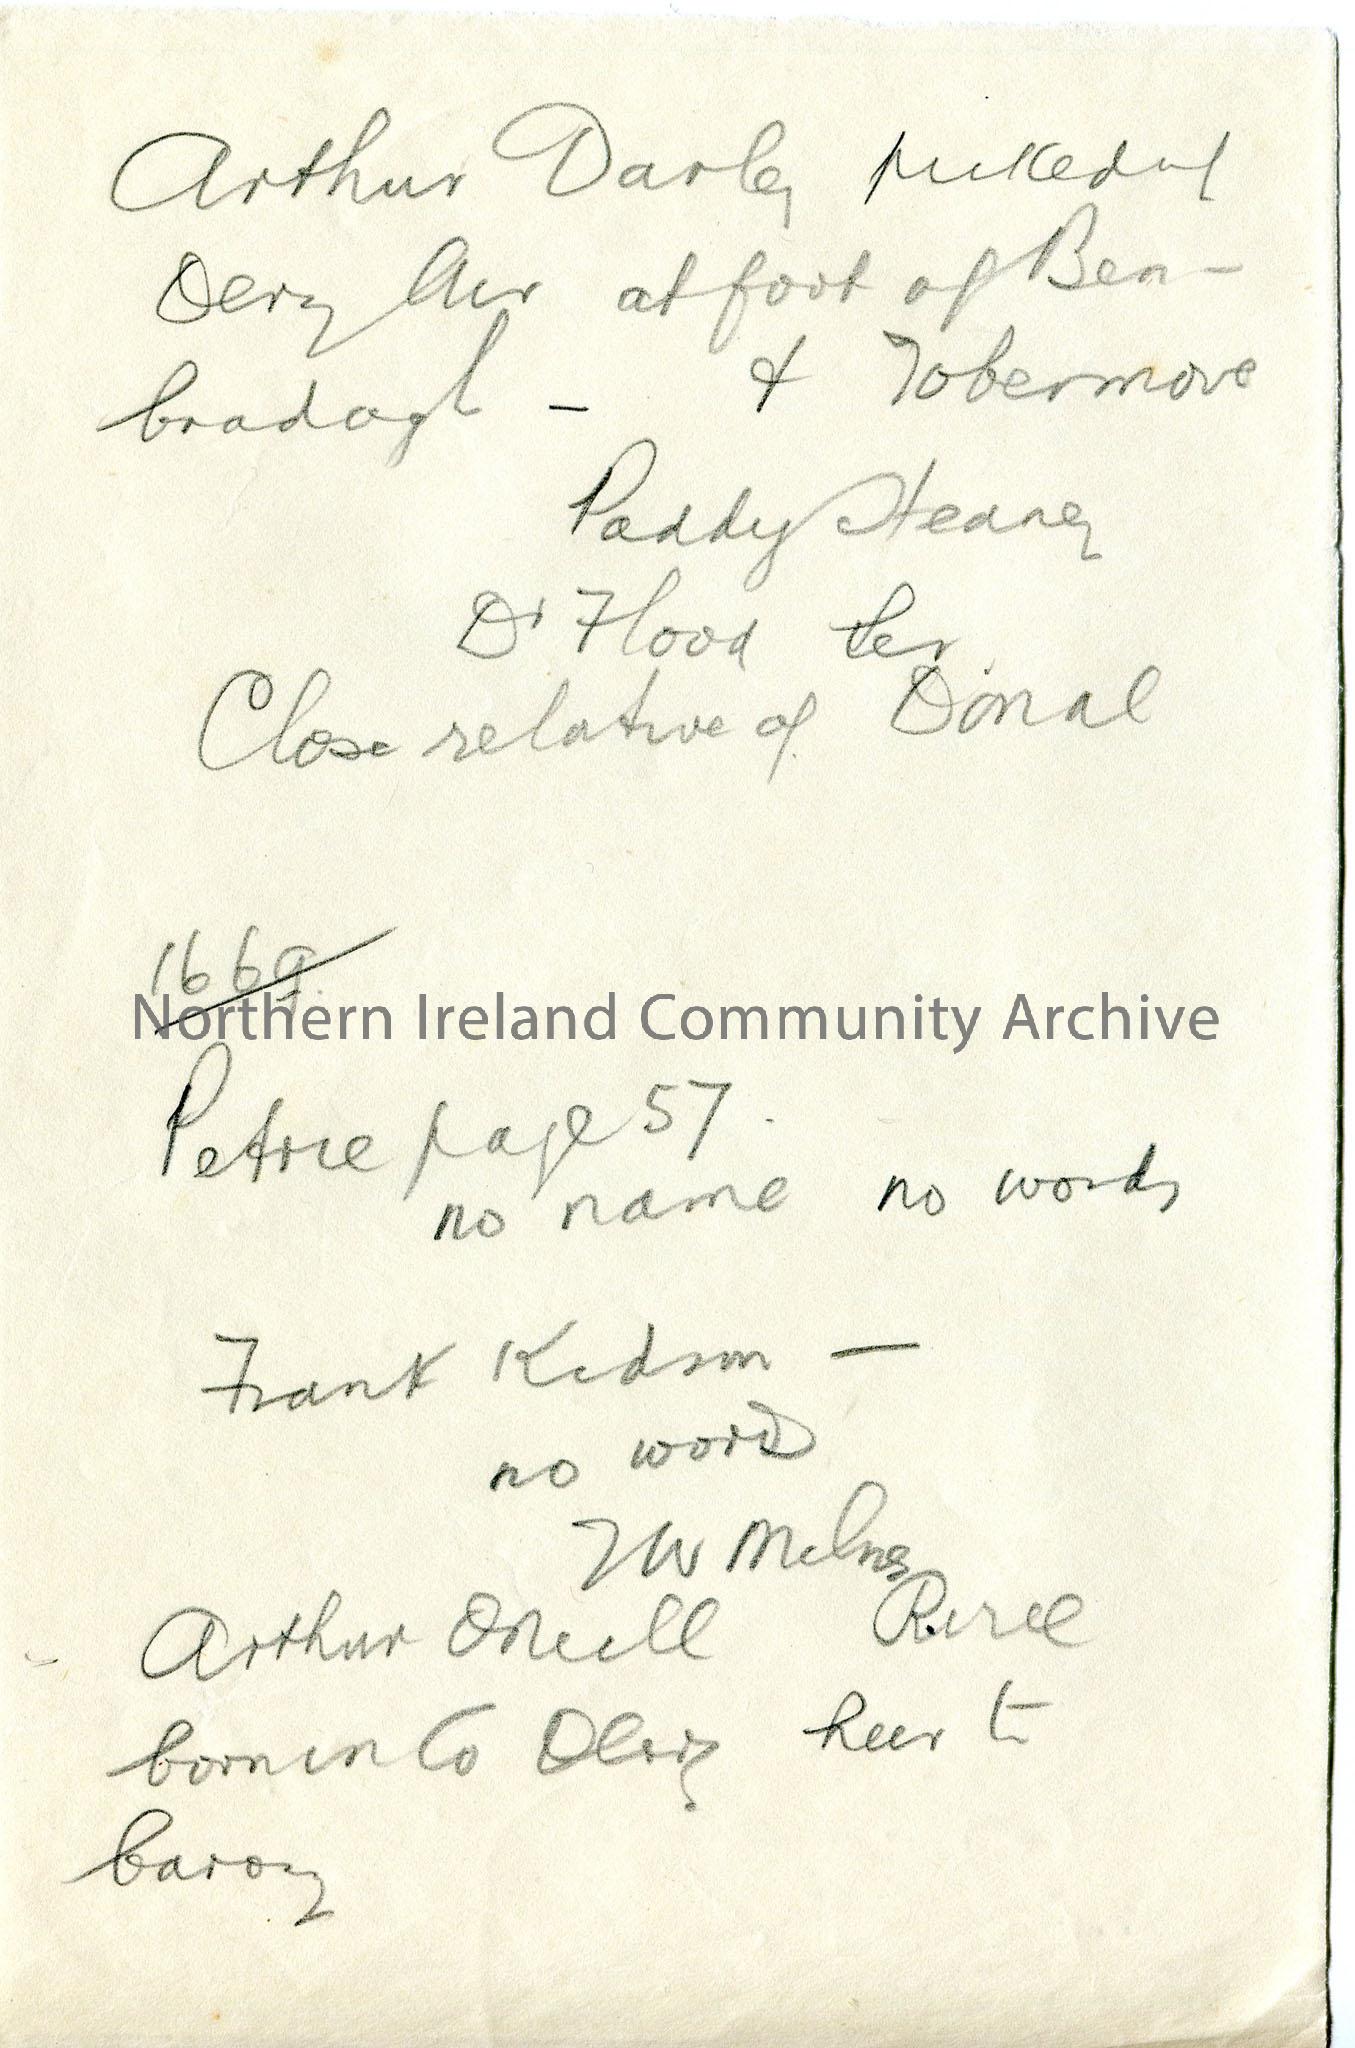 Arthur Darley picked up
Derry Air at foot of Ben-
bradagh - & Tobermore
Paddy Heaney
Dr Flood
Close relative of Donal
1669
Northern Ireland Community Archive
Petrie page 57.
no name no words
Frank Kidson —
no word
Arthur O'Neill
born in Co Derry heir to
barony